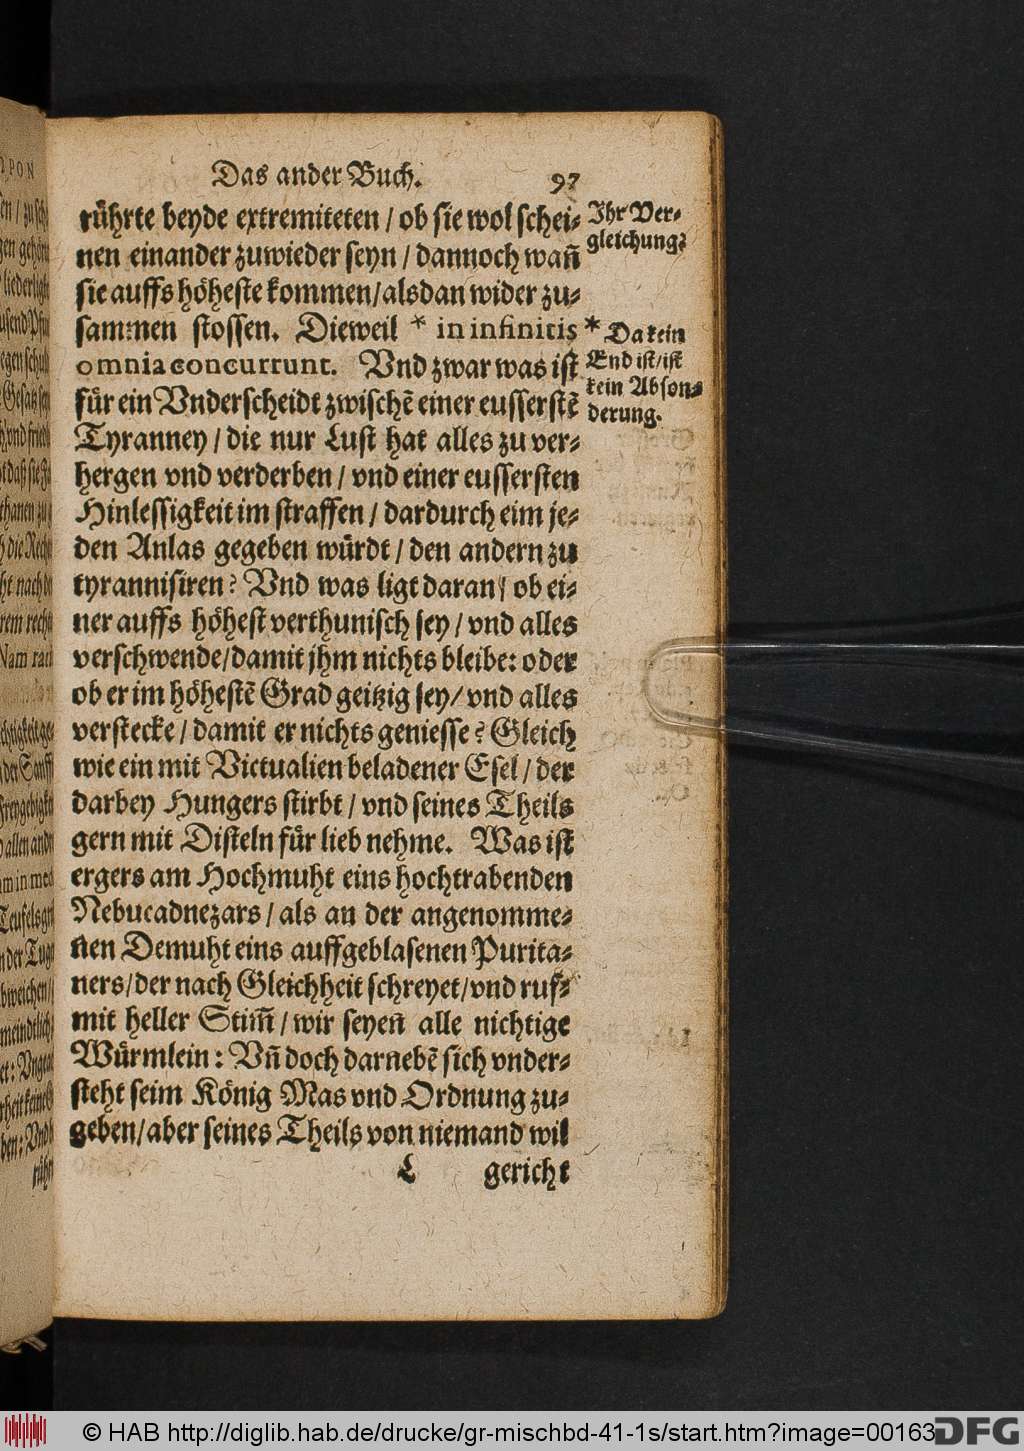 Das ander Buch. 97
rührte beyde extremiteten / ob sie wol schei-
nen einander zuwieder seyn / dannoch wañ
sie auffs höheste kommen/alsdan wider zu-
sammen stossen. Dieweil * in infinitis
omnia concurrunt. Vnd zwar was ist
für ein Vnderscheidt zwischē einer eusserstē
Tyranney / die nur Lust hat alles zu ver-
hergen vnd verderben / vnd einer eussersten
Hinlessigkeit im straffen / dardurch eim je-
den Anlas gegeben würdt / den andern zu
tyrannisiren? Vnd was ligt daran / ob ei-
ner auffs höhest verthunisch sey / vnd alles
verschwende/damit jhm nichts bleibe: oder
ob er im höhestē Grad geitzig sey/ vnd alles
verstecke / damit er nichts geniesse? Gleich
wie ein mit Victualien beladener Esel / der
darbey Hungers stirbt / vnd seines Theils
gern mit Disteln für lieb nehme. Was ist
ergers am Hochmuht eins hochtrabenden
Nebucadnezars / als an der angenomme-
nen Demuht eins auffgeblasenen Purita-
ners/der nach Gleichheit schreyet/vnd ruf-
mit heller Stim̃ / wir seyen alle nichtige
Würmlein: Vñ doch darnebē sich vnder-
steht seim König Mas vnd Ordnung zu-
geben/aber seines Theils von niemand wil
L gericht
Ihr Ver-
gleichung.
* Da kein
End ist/ist
kein Abson-
derung.
© HAB http://diglib.hab.de/drucke/gr-mischbd-41-1s/start.htm?image=00163
DFG